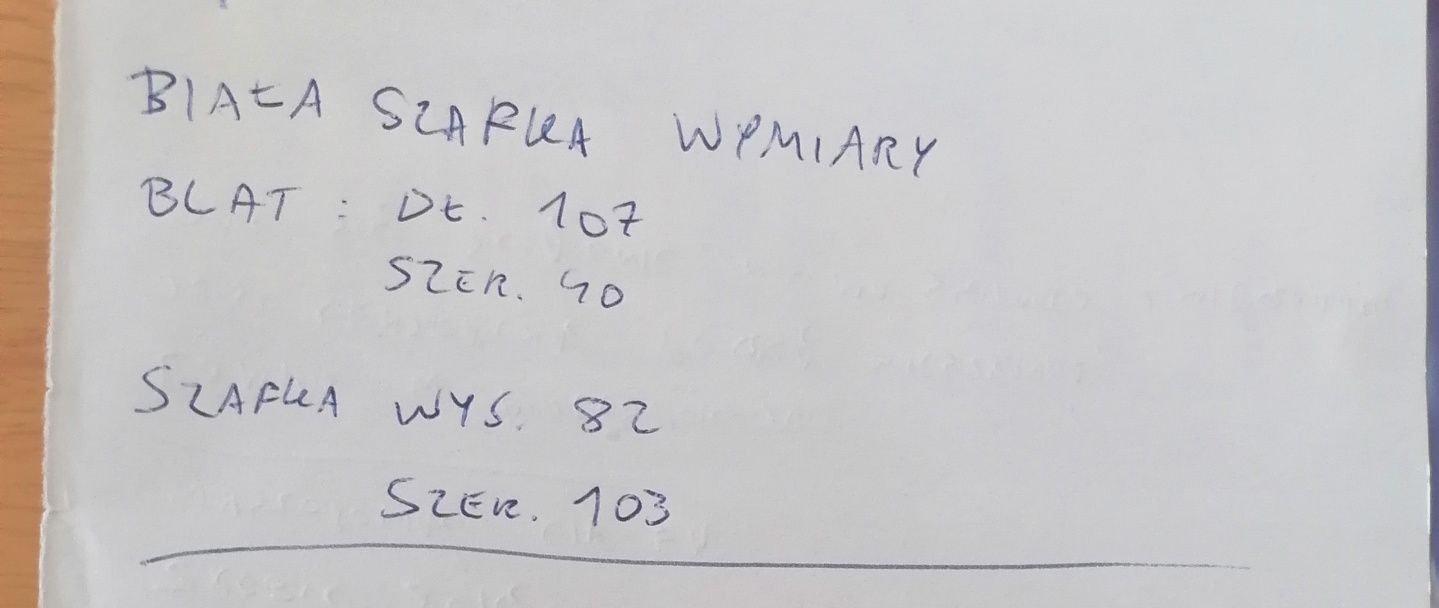 BIAŁA SZAFKA WYMIARY
BLAT : DŁ. 107
SZER. 40
SZAFKA WYS. 82
SZER. 103